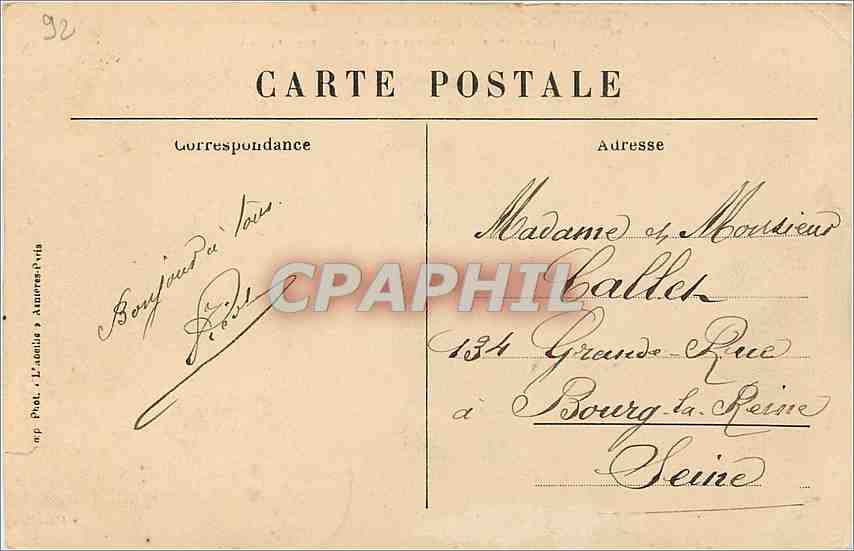 92
CARTE POSTALE
Correspondance
Adresse
Bonjour à tous.
Madame et Monsieur
Callet
134 Grande-Rue
à Bourg-la-Reine
Seine
CPAPHIL
Phot. Asnières-Paris